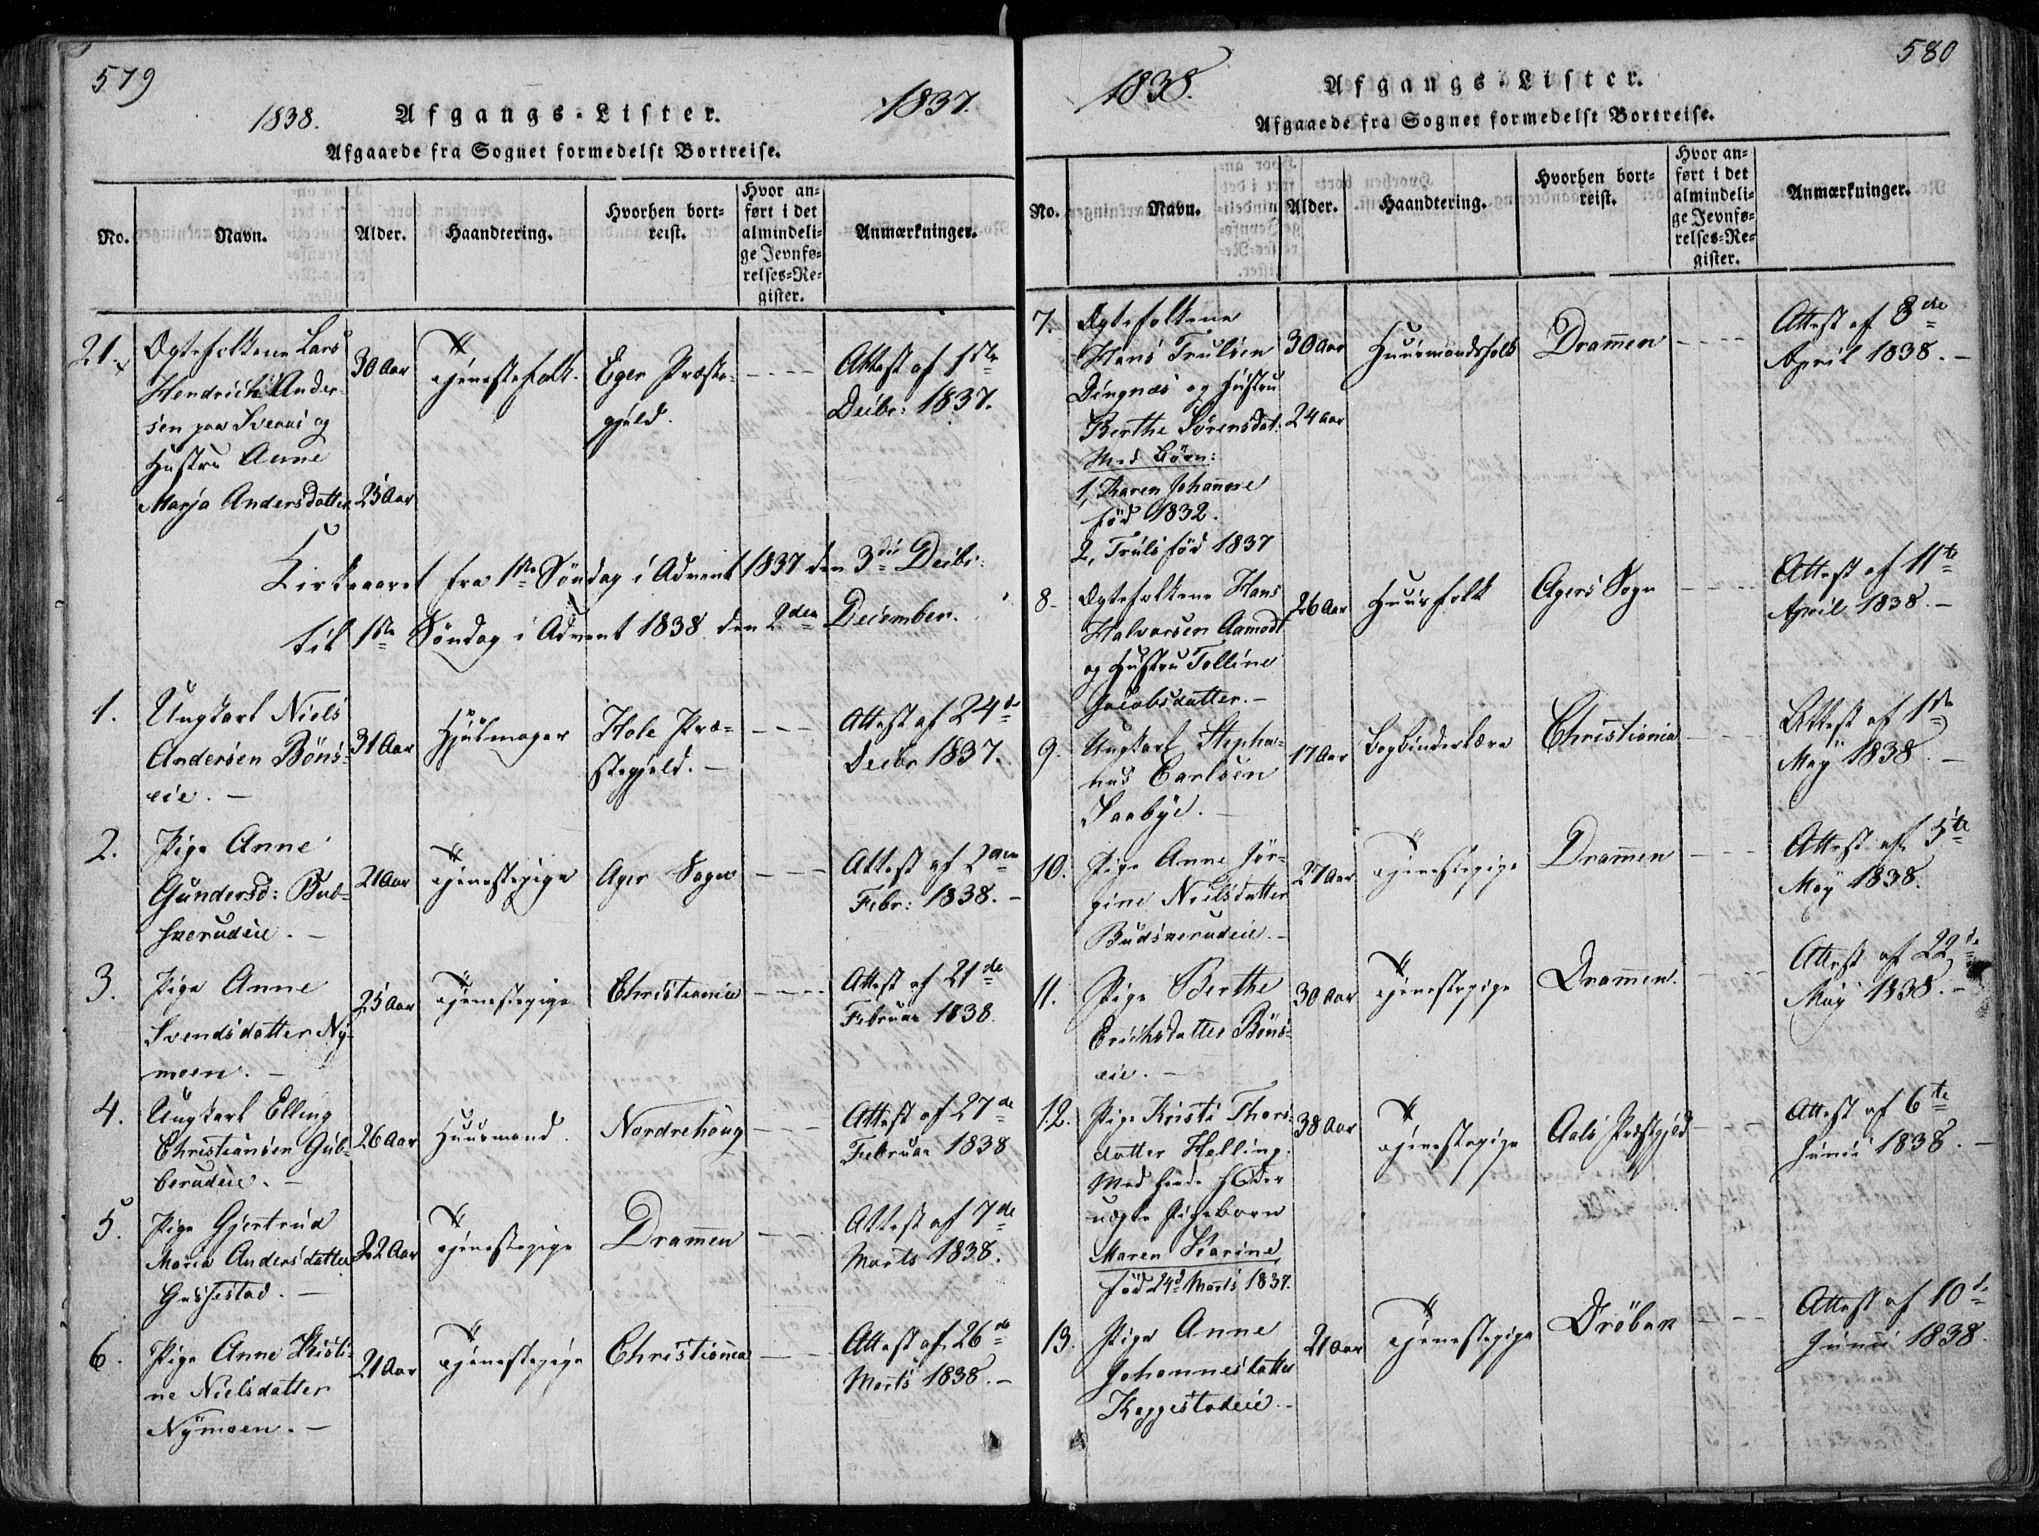 579
1838.
Afgangs-Lister.
1837.
Afgaaede fra Sognet formedelst Bortreise.
No.
Navn.
Alder.
Haandtering.
Hvorhen bort-
reist.
Hvor an-
ført i det
almindeli-
ge Jevnfø-
relses-Re-
gister.
Anmærkninger.
21.
Ægtefolkene Lars
Hendrich Ander-
sen paa Sveaas og
Hustru Anne
Marja Andersdatter
30 Aar
25 Aar
Tjenestefolk.
Eger Præste-
gjeld.
Attest af 1ste
Decbr: 1837.
Kirkeaaret fra 1ste Søndag i Advent 1837 den 3die Decbr:
til 1ste Søndag i Advent 1838 den 2den December.
1.
Ungkarl Niels
Andersen Bøns-
eie.
31 Aar
Hjulmager
Hole Præ-
stegjeld.
Attest af 24de
Decbr 1837.
2.
Pige Anne
Gundersd: Bud-
sæerudeie.
21 Aar
Tjenestepige
Ager Sogn
Attest af 2den
Febr: 1838.
3.
Pige Anne
Svendsdatter Ny-
moen.
25 Aar
Tjenestepige
Christiania
Attest af 21de
Februar 1838.
4.
Ungkarl Elling
Christiansen Gub-
berudeie.
26 Aar
Huusmand.
Nordrehoug
Attest af 27de
Februar 1838
5.
Pige Gjertrud
Maria Andersdatter
Gussestad.
22 Aar
Tjenestepige
Drammen
Attest af 7de
Marts 1838.
6.
Pige Anne Kisti-
ne Nielsdatter
Nÿmoen.
21 Aar
Tjenestepige
Christiania
Attest af 26de
Marts 1838.
580
1838.
Afgangs-Lister.
Afgaaede fra Sognet formedelst Bortreise.
No.
Navn.
Alder.
Haandtering.
Hvorhen bort-
reist.
Hvor an-
ført i det
almindeli-
ge Jevnfø-
relses-Re-
gister.
Anmærkninger.
7.
Ægtefolkene
Hans Trulsen
Dingnæs og Hustru
Berthe Sørensdat.
Med Børn:
1, Karen Johanne
fød 1832.
2, Truls fød 1837
30 Aar
24 Aar
Huusmandsfolk
Drammen
Attest af 3die
April 1838.
8.
Ægtefolkene Hans
Halvorsen Aamodt
og Hustru Tolline
Jacobsdatter.
26 Aar
Huusfolk
Agers Sogn
Attest af 11te
April 1838.
9.
Ungkarl Stepha-
nus Carlsen
Saabÿe.
17 Aar
Bogbinderlære
Christiania
Attest af 1ste
Maÿ 1838.
10.
Pige Anne Jør-
gine Nielsdatter
Budsærudeie.
27 Aar
Tjenestepige
Drammen
Attest af 5te
Maÿ 1838.
11.
Pige Berthe
Erichsdatter Bøns-
eie.
30 Aar
Tjenestepige
Drammen.
Attest af 22de
Maÿ 1838.
12.
Pige Kristi Thors-
datter Helling.
Med
uægte Pigebarn
Maren Karine
fød 24de Marts 1837.
38 Aar
Tjenestepige
Aals Præstgjeld
Attest af 6te
Junii 1838.
13.
Pige Anne
Johannesdatter
Kaggestadeie.
21 Aar
Tjenestepige
Drøbak
Attest af 10de
Junii 1838.